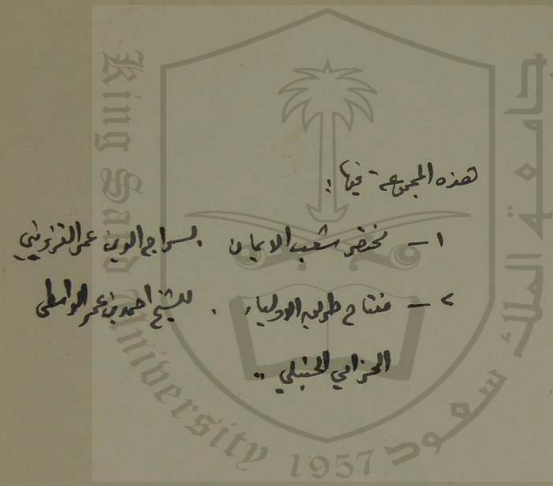 هذه المجموعة فيها :
١ - مختصر شعب الايمان . لسراج الدين عمر القزويني
٢ - مفتاح طريق الاولياء . للشيخ احمد بن عمر الواسطي
الحزامي الحنبلي ..
King Saud University
1957
جامعة الملك سعود